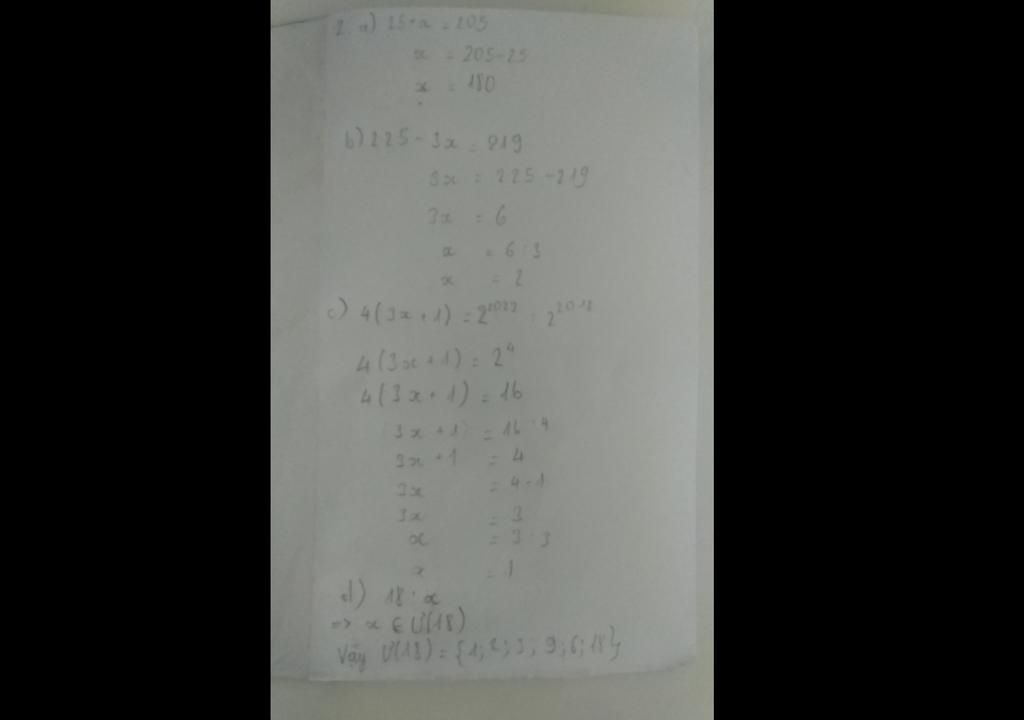 2. a) 25 + x = 205
x = 205 - 25
x = 180
b) 225 - 3x = 219
3x = 225 - 219
3x = 6
x = 6 : 3
x = 2
c) 4(3x + 1) = 2²⁰²² : 2²⁰¹⁸
4(3x + 1) = 2⁴
4(3x + 1) = 16
3x + 1 = 16 : 4
3x + 1 = 4
3x = 4 - 1
3x = 3
x = 3 : 3
x = 1
d) 18 ⋮ x
=> x ∈ Ư(18)
Vậy Ư(18) = {1; 2; 3; 9; 6; 18}